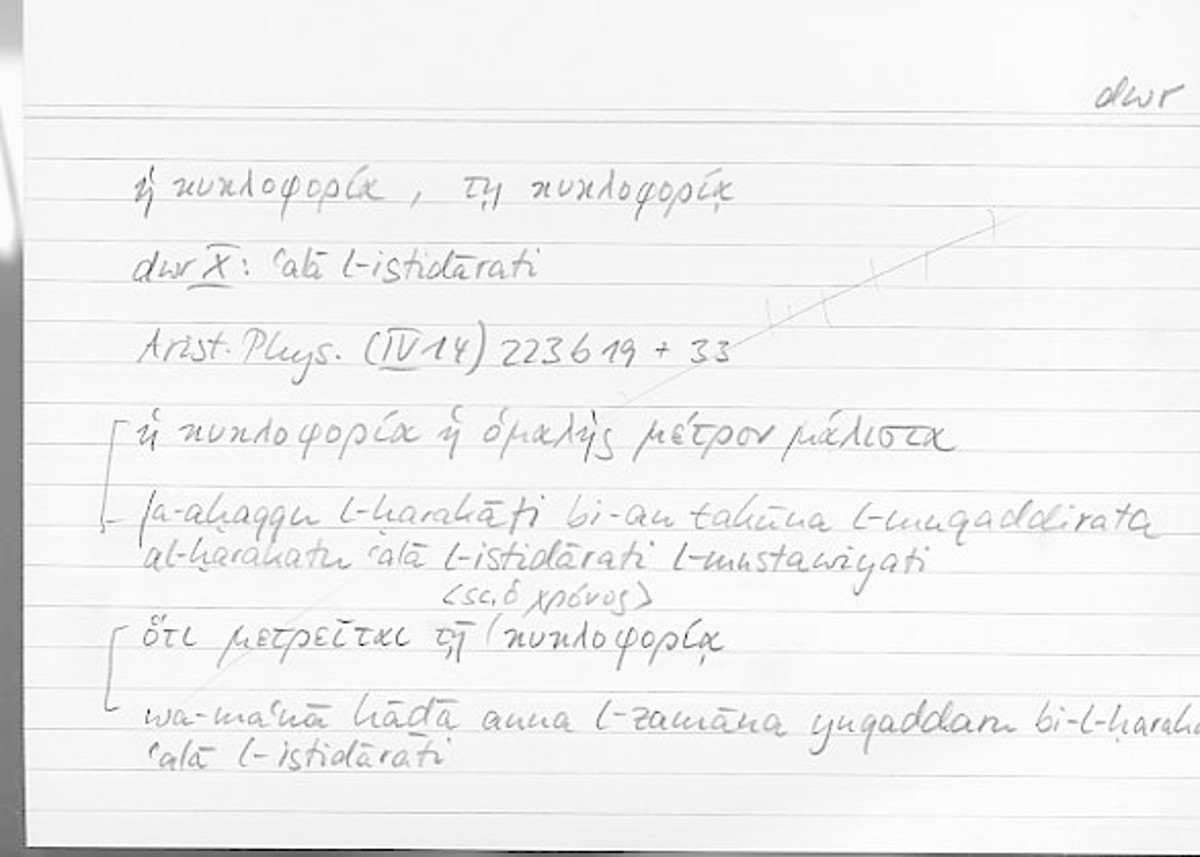 dwr
ἡ κυκλοφορία, τῇ κυκλοφορίᾳ
dwr X: ʿalā l-istidārati
Arist. Phys. (IV 14) 223b19 + 33
ἡ κυκλοφορία ἡ ὁμαλὴς μέτρον μάλιστα
fa-aḥaqqu l-ḥarakāti bi-an takūna l-muqaddirata
al-ḥarakatu ʿalā l-istidārati l-mustawiyati
<sc. ὁ χρόνος>
ὅτι μετρεῖται τῇ κυκλοφορίᾳ
wa-maʿnā hāḏā anna l-zamāna yuqaddaru bi-l-ḥaraka
ʿalā l-istidārati